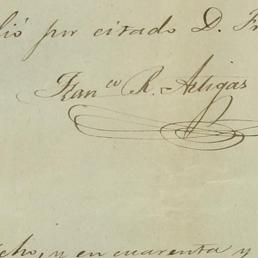 lió por citado D. Fr
Franco R. Artigas
cho, y en cuarenta y